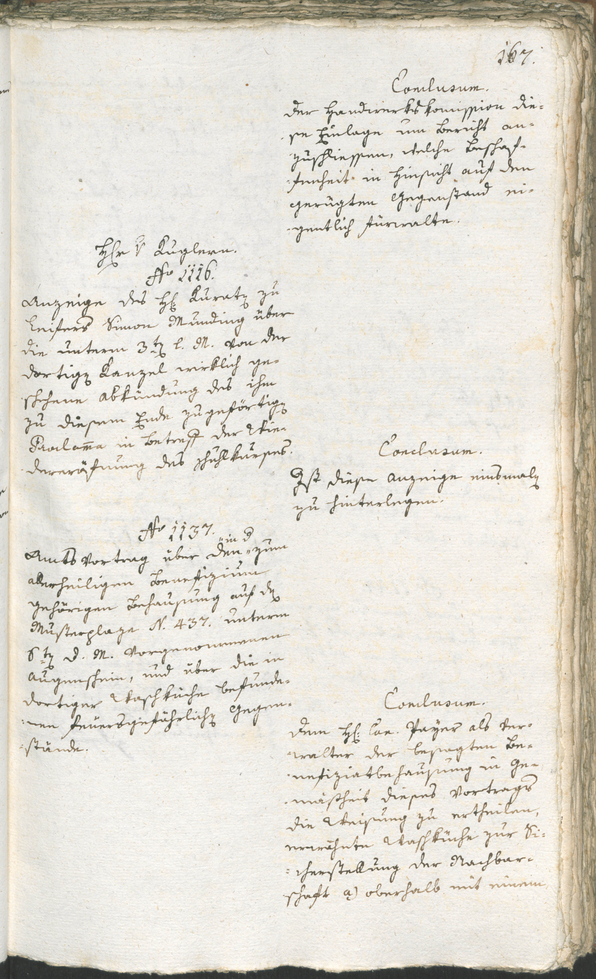 167.
Conclusum.
Der Handwerkskom̅ission die-
se Einlage um Bericht an-
zuschliessen, welche Beschaf-
fenheit in Hinsicht auf den
gerügten Gegenstand ei-
gentlich fürwalte.
Hr v Kuglern.
Nro 1116.
Anzeige des H. Kuratz zu
Leifers Simon Munding über
die unterm 3tz l. M. von der
dortigz Kanzel wirklich ge-
schehene Abkündung des ihm
zu diesem Ende zugefertigtz
Proclame in Betreff der Wie-
dereröfnung des Schulkurses.
Conclusum.
Ist diese Anzeige einsmalz
zu hinterlegen.
Nro 1137.
Amts Vortrag über den in d zum
Allerheiligen Benefizium
gehörigen Behausung auf dz
Musterplaze N. 437. unterm
6tz d. M. vorgenommenen
Augenschein, und über die in
dortiger Waschküche befunde-
nen feuersgefährlichz Gegen-
stände.
Conclusum.
Dem H. Con. Payer als Ver-
walter der besagten Be-
nefiziatbehausung in Ge-
mässheit dieses Vortrags
die Weisung zu ertheilen,
erwähnte Waschküche zur Si-
cherstellung der Nachbar-
schaft a) oberhalb mit einem